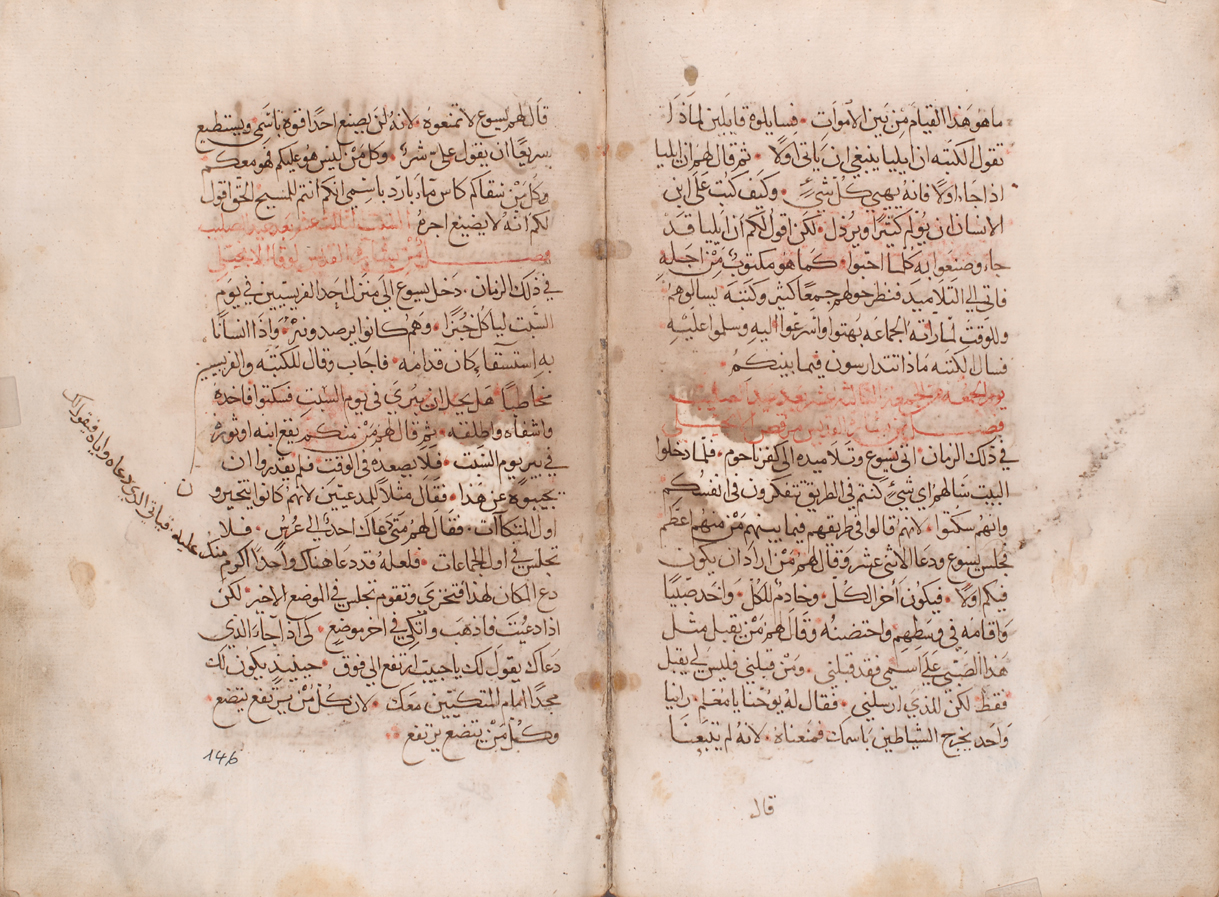 ما هو هذا القيام من بين الاموات • فسايلوه قايلين لماذا
تقول الكتبه ان ايليا ينبغي ان ياتي اولا • ثم قال لهم ان ايليا
اذا جاء اولا فانه يهيي كل شيء • وكيف كتب على ابن
الانسان ان يولم كثيرا ويرذل • لكن اقول لكم ان ايليا قد
جاء وصنعوا به كلما احبوا • كما هو مكتوب من اجله
فاتى الى التلاميد فنظر حولهم جمعا كثير وكتبه يسالوهم
وللوقت لما راته الجماعه بهتوا واسرعوا اليه وسلموا عليه
فسال الكتبه ماذا تتدارسون فيما بينكم •
يوم الجمعه من الجمعه الثالثه عشر بعد عيد الصليب
فصل من بشاره القديس مرقص الانجيلي
في ذلك الزمان • اتى يسوع وتلاميده الى كفرناحوم • فلما دخلوا
البيت سالهم اي شيء كنتم في الطريق تتفكرون في انفسكم
وانهم سكتوا • لانهم قالوا في طريقهم فيما بينهم من منهم اعظم
فجلس يسوع ودعا الاثني عشر وقال لهم من اراد ان يكون
فيكم اولا • فيكون اخر الكل • وخادم للكل • واخد صبيا
واقامه في وسطهم واحتضنه • وقال لهم من يقبل مثل
هذا الصبي على اسمي فقد قبلني • ومن قبلني فليس لي يقبل
فقط • لكن للذي ارسلني • فقال له يوحنا يا معلم • راينا
واحد يخرج الشياطين باسمك فمنعناه • لانه لم يتبعنا
قال
قال لهم يسوع لا تمنعوه • لانه لن يصنع احدا قوه باسمي ويستطيع
سريعا ان يقول علي شر • وكل من ليس هو عليكم فهو معكم
وكل من سقاكم كاس ماء بارد باسمي انكم انتم للمسيح الحق اقول
لكم انه لا يضيع اجره السبت الثالث عشر بعد عيد الصليب
فصل من بشاره القديس لوقا الانجيلي
في ذلك الزمان • دخل يسوع الى منزل احد الفريسيين في يوم
السبت لياكل خبزا • وهم كانوا يرصدونه • واذا انسانا
به استسقاء كان قدامه • فاجاب وقال للكتبه والفريسيين
مخاطبا • هل يحل ان يبري في يوم السبت فسكتوا فاخده
واشفاه واطلقه • ثم قال لهم من منكم يقع ابنه او ثوره
في بير يوم السبت • فلا يصعده في الوقت فلم يقدروا ان
يجيبوه عن هدا • فقال مثلا للمدعيين لانهم كانوا يتخيرو ن
اول المتكاات • فقال لهم متى دعاك احد الى عرس • فلا
تجلس في اول الجماعات • فلعله قد دعا هناك واحدا اكرم
منك عليه فياتي الذي دعاه واياه فيقول لك
دع المكان لهذا فتخزي وتقوم تجلس في الموضع الاخير • لكن
اذا دعيت فاذهب واتكي في اخر موضع • لكي اذا جاء الذي
دعاك يقول لك يا حبيب ارتفع الى فوق • حينيد يكون لك
مجدا امام المتكيين معك • لان كل من يرتفع يتضع •
وكل من يتضع يرتفع •
146